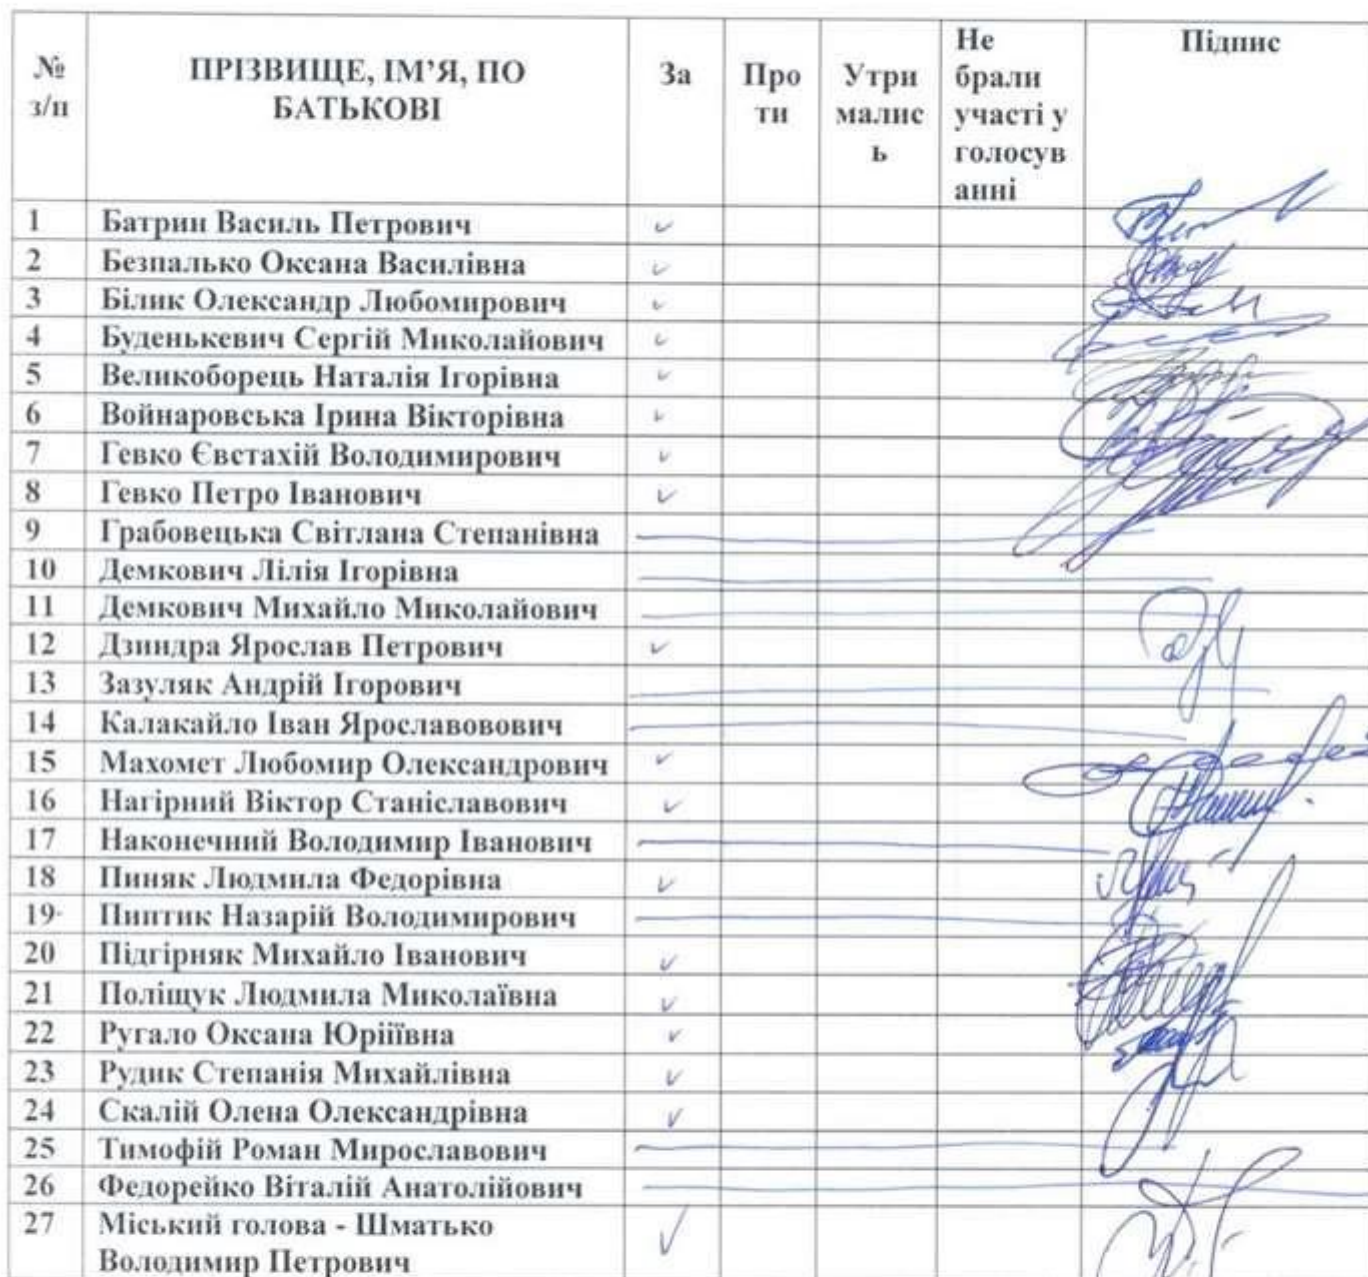 № з/п ПРІЗВИЩЕ, ІМ’Я, ПО БАТЬКОВІ За Про ти Утри малис ь Не брали участі у голосув анні Підпис
1 Батрин Василь Петрович ✓
2 Безпалько Оксана Василівна ✓
3 Білик Олександр Любомирович ✓
4 Буденькевич Сергій Миколайович ✓
5 Великоборець Наталія Ігорівна ✓
6 Войнаровська Ірина Вікторівна ✓
7 Гевко Євстахій Володимирович ✓
8 Гевко Петро Іванович ✓
9 Грабовецька Світлана Степанівна
10 Демкович Лілія Ігорівна
11 Демкович Михайло Миколайович
12 Дзиндра Ярослав Петрович ✓
13 Зазуляк Андрій Ігорович
14 Калакайло Іван Ярославовович
15 Махомет Любомир Олександрович ✓
16 Нагірний Віктор Станіславович ✓
17 Наконечний Володимир Іванович
18 Пиняк Людмила Федорівна ✓
19 Пиптик Назарій Володимирович
20 Підгірняк Михайло Іванович ✓
21 Поліщук Людмила Миколаївна ✓
22 Ругало Оксана Юріїївна ✓
23 Рудик Степанія Михайлівна ✓
24 Скалій Олена Олександрівна ✓
25 Тимофій Роман Мирославович
26 Федорейко Віталій Анатолійович
27 Міський голова - Шматько ✓
Володимир Петрович